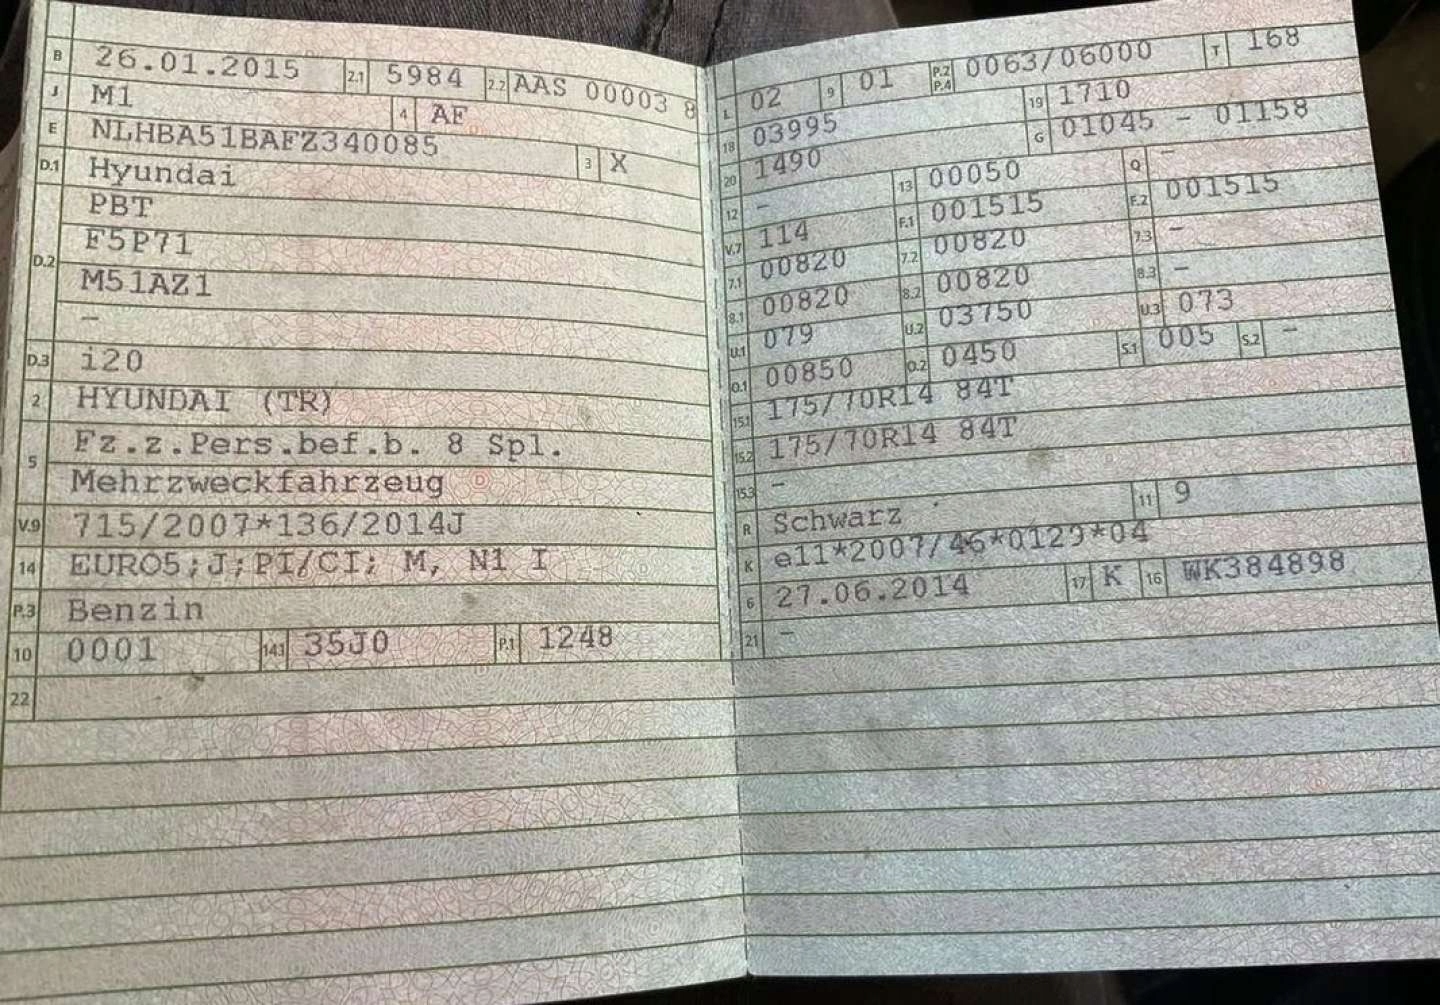 B 26.01.2015 2.1 5984 2.2 AAS 00003 8
J M1 4 AF
E NLHBA51BAFZ340085 3 X
D.1 Hyundai
D.2 PBT
F5P71
M51AZ1
–
D.3 i20
2 HYUNDAI (TR)
5 Fz.z.Pers.bef.b. 8 Spl.
Mehrzweckfahrzeug
V.9 715/2007*136/2014J
14 EURO5;J;PI/CI; M, N1 I
P.3 Benzin
10 0001 14.1 35J0 P.1 1248
22
L 02 9 01 P.2 P.4 0063/06000 T 168
18 03995 19 1710
20 1490 G 01045 - 01158
12 – 13 00050 Q –
V.7 114 F.1 001515 F.2 001515
7.1 00820 7.2 00820 7.3 –
8.1 00820 8.2 00820 8.3 –
U.1 079 U.2 03750 U.3 073
O.1 00850 O.2 0450 S.1 005 S.2 –
15.1 175/70R14 84T
15.2 175/70R14 84T
15.3 –
R Schwarz 11 9
K e11*2007/46*0129*04
6 27.06.2014 17 K 16 WK384898
21 –